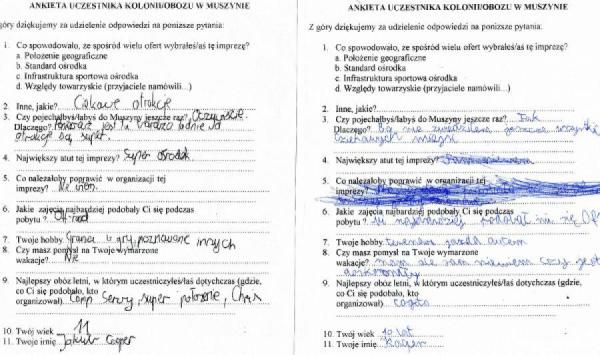 ANKIETA UCZESTNIKA KOLONII/OBOZU W MUSZYNIE
góry dziękujemy za udzielenie odpowiedzi na poniższe pytania:
1. Co spowodowało, że spośród wielu ofert wybrałeś/aś tę imprezę?
a. Położenie geograficzne
b. Standard ośrodka
c. Infrastruktura sportowa ośrodka
d. Względy towarzyskie (przyjaciele namówili...)
2. Inne, jakie? Ciekawe atrakcje
3. Czy pojechałbyś/łabyś do Muszyny jeszcze raz? Oczywiście.
Dlaczego? Ponieważ jest tu bardzo ładnie i są
atrakcje są super.
4. Największy atut tej imprezy? Super ośrodek
5. Co należałoby poprawić w organizacji tej
imprezy? Nie wiem.
6. Jakie zajęcia najbardziej podobały Ci się podczas
pobytu? Off-road
7. Twoje hobby Grania w gry, poznawanie innych
8. Czy masz pomysł na Twoje wymarzone
wakacje? Nie
9. Najlepszy obóz letni, w którym uczestniczyłeś/łaś dotychczas (gdzie,
co Ci się podobało, kto
organizował) super położenie,
10. Twój wiek 11
11. Twoje imię Jakub
ANKIETA UCZESTNIKA KOLONII/OBOZU W MUSZYNIE
Z góry dziękujemy za udzielenie odpowiedzi na poniższe pytania:
1. Co spowodowało, że spośród wielu ofert wybrałeś/aś tę imprezę?
a. Położenie geograficzne
b. Standard ośrodka
c. Infrastruktura sportowa ośrodka
d. Względy towarzyskie (przyjaciele namówili...)
2. Inne, jakie?
3. Czy pojechałbyś/łabyś do Muszyny jeszcze raz? Tak
Dlaczego? nie jeszcze
4. Największy atut tej imprezy?
5. Co należałoby poprawić w organizacji tej
imprezy?
6. Jakie zajęcia najbardziej podobały Ci się podczas
pobytu? najbardziej podobał mi się
7. Twoje hobby jazda autem
8. Czy masz pomysł na Twoje wymarzone
wakacje? mam ale sam niewiem czy jest
doskonały
9. Najlepszy obóz letni, w którym uczestniczyłeś/łaś dotychczas (gdzie,
co Ci się podobało, kto
organizował)
10. Twój wiek 10 lat
11. Twoje imię Kacper